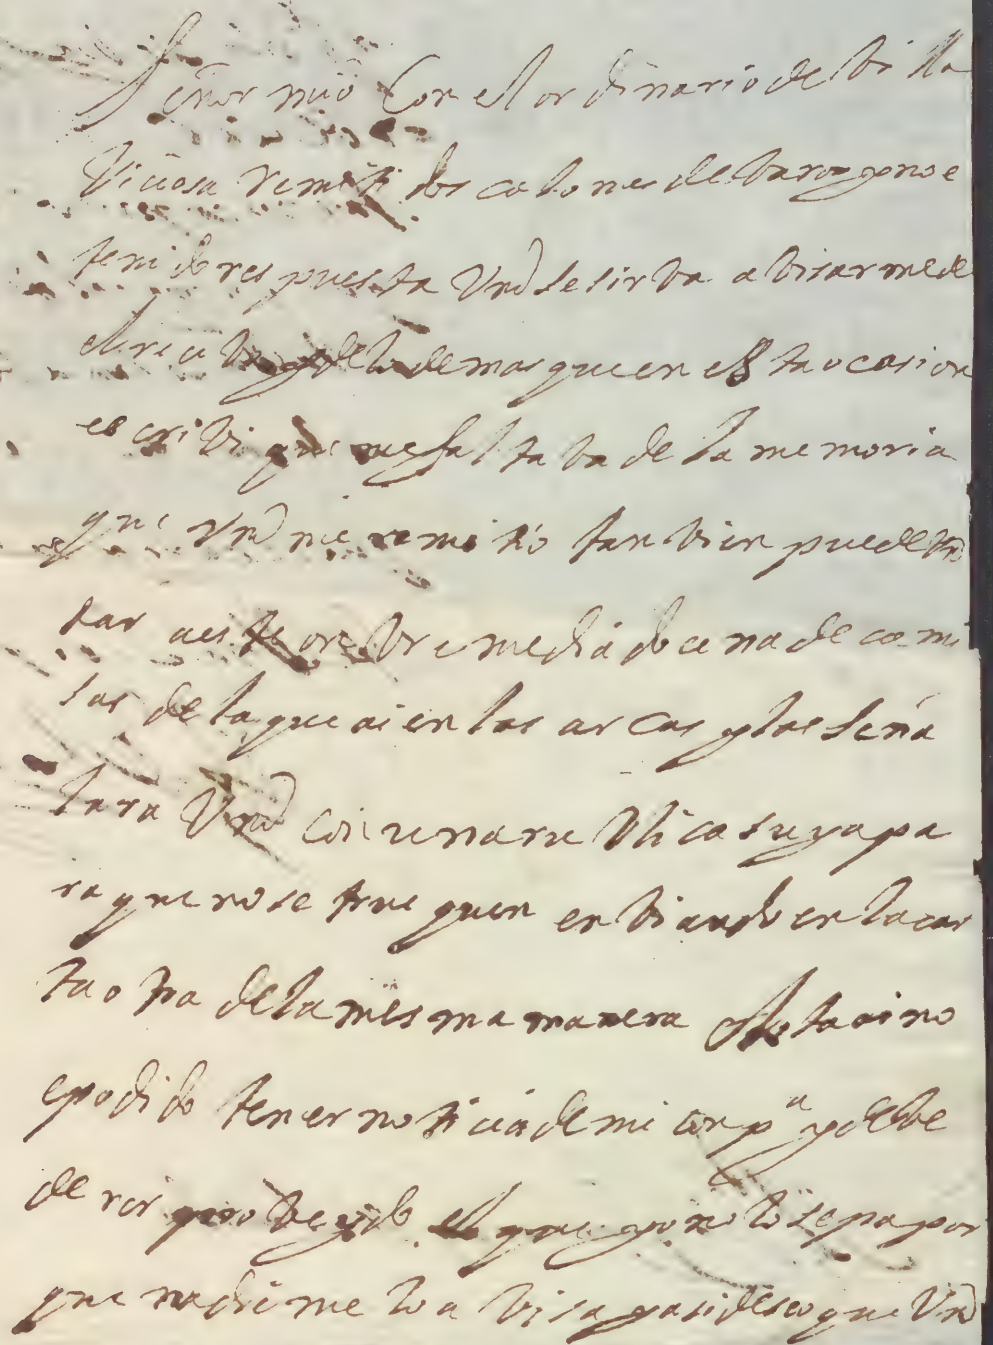 Señor mio Con el ordinario de billa
biciosa remiti dos calones de baro y no e
tenido respuesta Vmd se sirba abisarme de
el recibo y de lo demas que en esta ocasion
escribi que me faltaba de la memoria
que Vmd me remitio tanbien puede Vmd
dar a este onbre media docena de cami
sas de la que ai en las arcas y las seña
lara Vmd con una rubrica suya pa
ra que no se truequen enbiando en la car
ta otra de la mesma manera asta oi no
e podido tener noticia de mi conpª y debe
de ser probeydo el que yo no lo sepa por
que nadie me lo abisa y asi deseo que Vmd